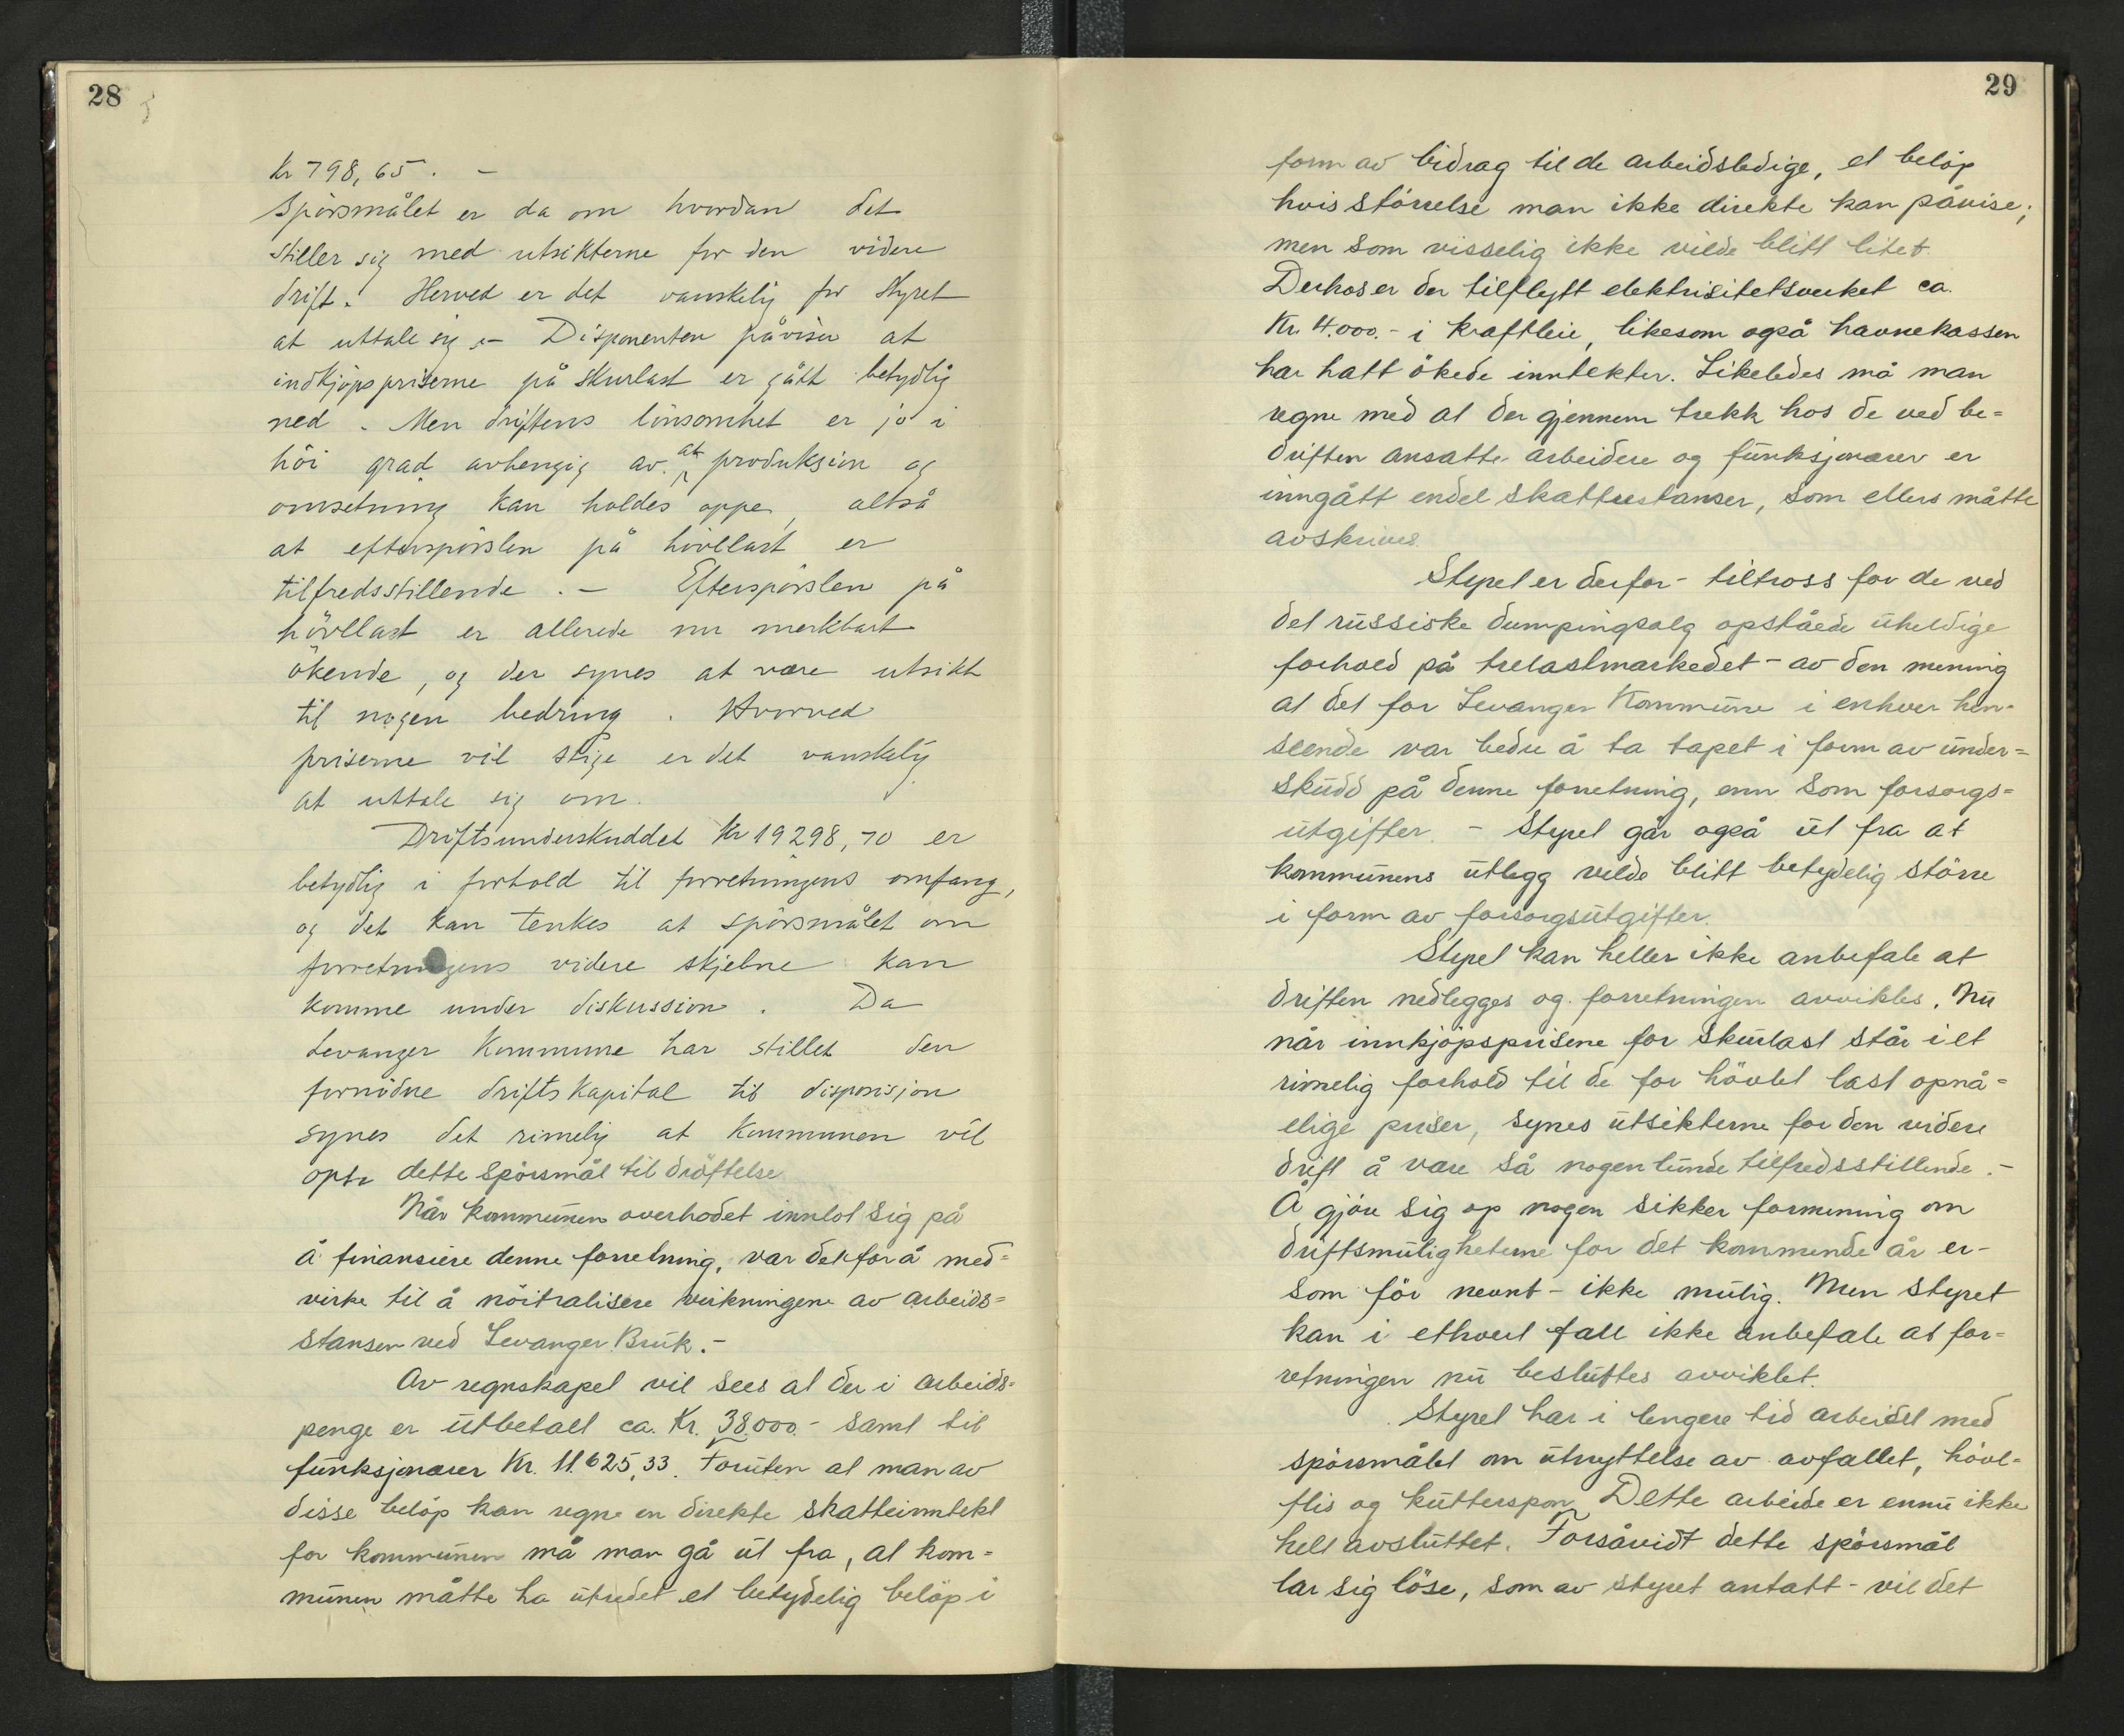 28
Kr 798,65. –
Spörsmålet er da om hvordan det
stiller sig med utsikterne for den videre
drift. Herved er det vanskelig for styret
at uttale sig. – Disponenten påviser at
indkjöpspriserne på skurlast er gått betydlig
ned. Men driftens lönsomhet er jo i
höi grad avhengig av at produksion og
omsetning kan holdes oppe, altså
at efterspörslen på hövllast er
tilfredsstillende. – Efterspörslen på
hövllast er allerede nu merkbart
ökende, og der synes at være utsikt
til nogen bedring. Hvorved
priserne vil stige er det vanskelig
at uttale sig om.
Driftsunderskuddet Kr 19298,70 er
betydlig i forhold til forretningens omfang,
og det kan tenkes at spörsmålet om
forretningens videre skjebne kan
komme under diskussion. Da
Levanger Kommune har stillet den
fornödne driftskapital til disposisjon
synes det rimelig at Kommunen vil
opta dette spörsmål til dröftelse
Når kommunen overhodet innlot sig på
å finansiere denne forretning, var det for å med=
virke til å nöitralisere virkningene av arbeids=
stansen ved Levanger Bruk. –
Av regnskapet vil sees at der i arbeids=
penge er utbetalt ca. Kr. 38.000.- samt til
funksjonærer Kr. 11.625,33. Foruten at man av
disse belöp kan regne en direkte skatteinntekt
for kommunen må man gå ut fra, at kom=
munen måtte ha utredet et betydelig belöp i
29
form av bidrag til de arbeidsledige, et belöp
hvis störrelse man ikke direkte kan påvise;
men som visselig ikke vilde blitt litet.
Derhos er der tilflytt elektrisitetsverket ca.
Kr. 4.000.- i kraftleie, likesom også havnekassen
har hatt ökede inntekter. Likeledes må man
regne med at der gjennem trekk hos de ved be=
driften ansatte arbeidere og funksjonærer er
inngått endel skatterestanser, som ellers måtte
avskrives.
Styret er derfor – tiltross for de ved
det russiske dumpingsalg opståede uheldige
forhold på trelastmarkedet – av den mening
at det for Levanger Kommune i enhver hen=
seende var bedre å ta tapet i form av under=
skudd på denne forretning, enn som forsorgs=
utgifter. – Styret går også ut fra at
kommunens utlegg vilde blitt betydelig större
i form av forsorgsutgifter.
Styret kan heller ikke anbefale at
driften nedlegges og forretningen avvikles. Nu
når innkjöpsprisene for skurlast står i et
rimelig forhold til de for hövlet last opnå=
elige priser, synes utsikterne for den videre
drift å være så nogenlunde tilfredsstillende. –
Å gjöre sig op nogen sikker formening om
driftsmuligheterne for det kommende år er –
som för nevnt – ikke mulig. Men styret
kan i ethvert fall ikke anbefale at for=
retningen nu besluttes avviklet.
Styret har i lengere tid arbeidet med
spörsmålet om utnyttelse av avfallet, hövl=
flis og kutterspon. Dette arbeide er ennu ikke
helt avsluttet. Forsåvidt dette spörsmål
lar sig löse, som av styret antatt – vil det